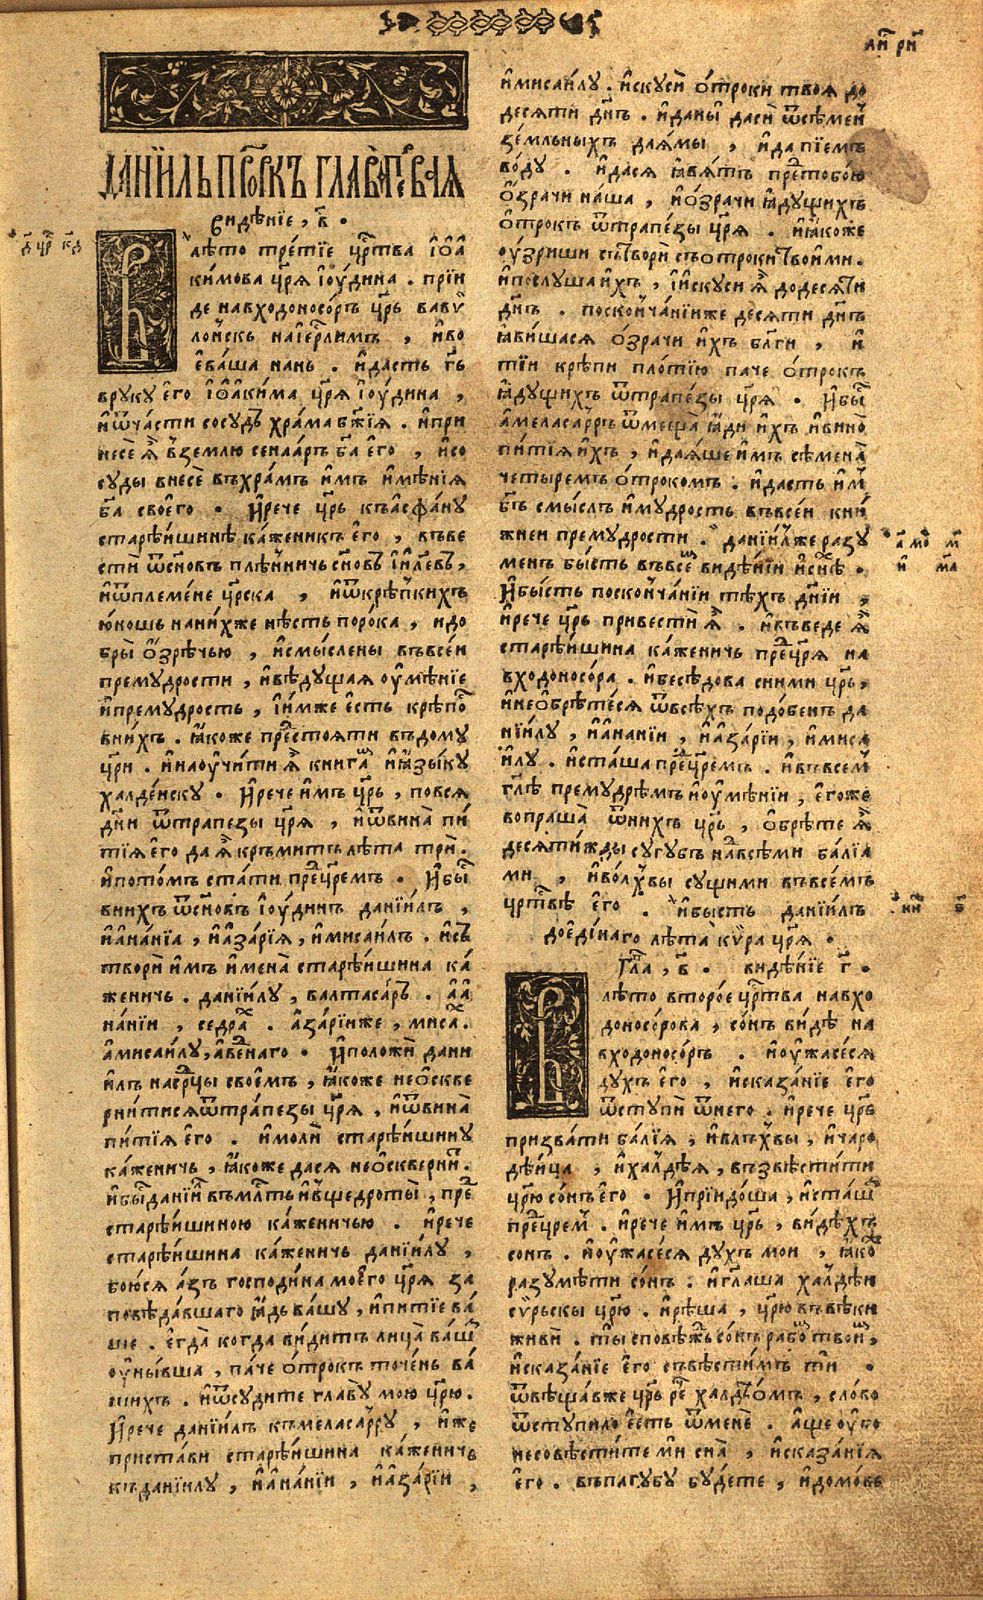 ДАНЇИЛЬ ПРⷪ҇РКЪ ГЛАВА ПЕРВАЯ
видѣнїе, в҃.
Влѣто третїе црⷭ҇тва їѡа
кимова цр҃ѧ їоудина. прїи
де навходоносоръ цр҃ь вавѷ
лоньскъ на їерⷭ҇лимъ, и во
еваша нань. и дасть гь҃
в руку его їѡакима цр҃ѧ їоудина,
и ѿ части сосудъ храма бж҃їѧ. и при
несе ѧ в землю сенааръ ба҃ его, и со
суды внесе въ храмъ имъ имѣнїѧ
ба҃ своего. И рече цр҃ь къ асфану
старѣишинѣ каженикъ его, въве
сти ѿ сн҃овъ плѣнничь сн҃овъ їил҃евъ,
и ѿ племене цр҃ска, и ѿ крѣпкихъ
юношь на нихже нѣсть порока, и до
бры ѡзрѣчью, и смыслены въ всеи
премудрости, и вѣдущаѧ оумѣнїе
и премудрость, їимже есть крѣпоⷭ҇
в нихъ. ꙗкоже преⷣстоѧти въ дому
цр҃и. и наоучити ѧ книгаⷨ и ꙗзыку
халдеиску. И рече имъ цр҃ь, по всѧ
дн҃и ѿ трапезы цр҃ѧ, и ѿ вина пи
тїѧ его да ѧ кръмитъ лѣта три.
и потомъ стати преⷣ цр҃емъ. И быⷭ҇
в нихъ ѿ сн҃овъ їоудинъ данїилъ,
и ананїа, и азарїѧ, и мисаилъ. и съ
твори имъ имена старѣишина ка
женичь. данїилу, валтасаръ. а а
нанїи, седраⷯ. азарїиже, мисаⷯ.
а мисаилу, авⷣенаго. И положи дани
илъ на срⷣцы своемъ, ꙗкоже не ѡскве
рнитисѧ ѿ трапезы цр҃ѧ, и ѿ вина
питїѧ его. и моли старѣишину
каженичь, ꙗкоже дасѧ не ѡсквернитⷭ҇.
и быⷭ҇ данїиⷧ въ млⷭ҇ть и в щедроты, преⷣ
старѣишиною каженичью. и рече
старѣишина каженичь данїилу,
боюсѧ азъ господина моего цр҃ѧ за
повѣдавшаго ꙗдь вашу, и питїе ва
ше. егда когда видитъ лица ваша
оунывша, паче отрокъ точень ва
шихъ. и ѡсудите главу мою цр҃ю.
И рече данїилъ къ меласарру, иже
пристави старѣишина каженичь
къ данїилу, и ананїи, и азарїи,
и мисаилу. искуси отроки твоѧ до
десѧти дн҃ъ. и даны даси ѿ сѣмен
земльныхъ да ꙗмы, и да пїемъ
воду. и дасѧ ꙗвѧтъ преⷣ тобою
ѡзрачи наша, и ѡзрачи ꙗдущихъ
отрокъ ѿ трапезы цр҃ѧ. и ꙗкоже
оузриши сътвори съ отроки твоими.
и послуша ихъ, и искуси ѧ до десѧти
дн҃ъ. по скончанїиже десѧти дн҃ъ
ꙗвишасѧ ѡзрачи ихъ бл҃ги, и
тїи крѣпи плотїю паче отрокъ
ꙗдущихъ ѿ трапезы цр҃ѧ. И быⷭ҇
амеласарръ ѿмеща ꙗди ихъ и вино
питїѧ ихъ, и даꙗше имъ сѣмена
четыремъ отрокомъ. и дасть имъ
бг҃ъ смыслъ и мудрость въ всеи кни
жнеи премудрости. данїилже разу
менъ бысть въ всеⷨ видѣнїи и снѣ.
И бысть по скончанїи тѣхъ дн҃їи,
и рече цр҃ь привести ѧ. и въведе ѧ
старѣишина каженичь преⷣ цр҃ѧ на
входоносора. и беседова с ними цр҃ь,
и не ѡбрѣтесѧ ѿ всѣхъ подобенъ да
нїилу, и ананїи, и азарїи, и миса
илу. и сташа преⷣ цр҃емъ. и въ всеⷨ
гл҃ѣ премудрѣмъ и оумѣнїи, егоже
вопраша ѿ нихъ цр҃ь, ѡбрѣте ѧ
десѧтижды сугубъ наⷣ всѣми балїа
ми, и волхвы сущими въ всемъ
црⷭ҇твѣ его. и бысть данїилъ
до единаго лѣта кѵра цр҃ѧ.
Гла҃, в҃. видѣнїе г҃.
Влѣто второе црⷭ҇тва навхо
доносорова, сонъ видѣ на
входоносоръ. и оужасесѧ
духъ его, и сказанїе его
ѿступи ѿ него. и рече цр҃ь
призвати балїѧ, и влъхвы, и чаро
дѣица, и халдѣѧ, възвѣстити
цр҃ю сонъ его. И прїидоша, и сташа
преⷣ цр҃емъ. и рече имъ цр҃ь, видѣхъ
сонъ. и оужасесѧ духъ мои, ꙗкоⷤ
разумѣти сонъ. и гл҃аша халдѣи
сѵрьскы цр҃ю. и рѣша, цр҃ю въ вѣки
живи. ты сповѣжь сонъ рабоⷨ твоиⷨ,
и сказанїе его съвѣстимъ ти.
ѿвѣщавже цр҃ь реⷱ҇ халдѣомъ, слово
ѿступило есть ѿ мене. аще оубо
не совѣстите ми сна, и сказанїѧ
его. въ пагубу будете, и домове